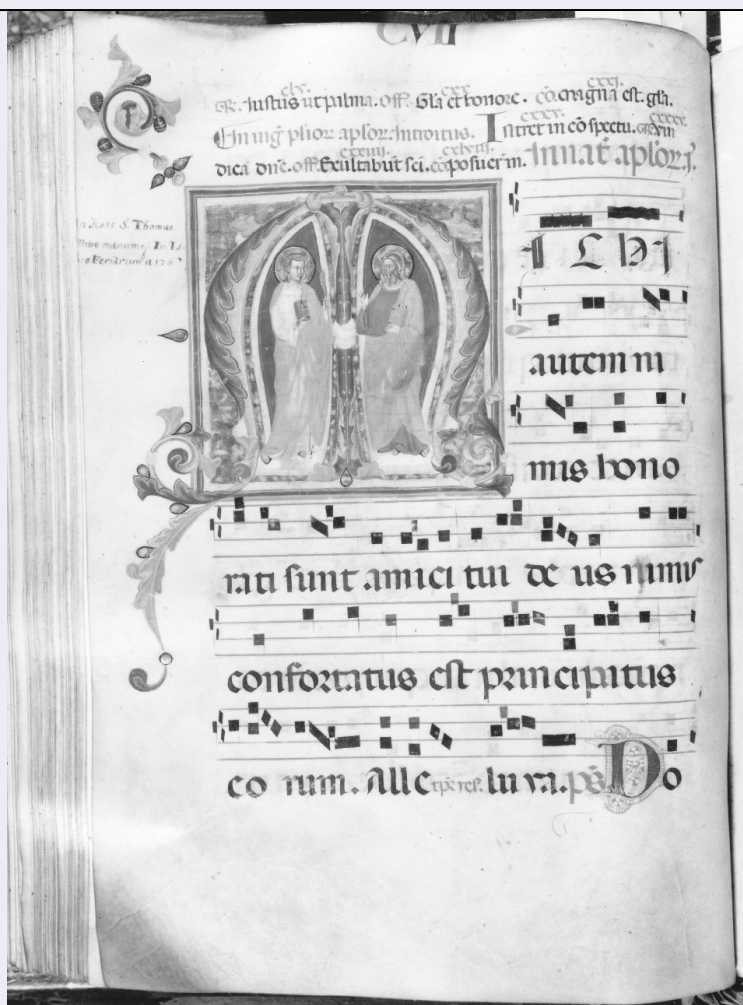 CVII
clv. cxx cxxi.
R. Iustus ut palma. off. Gla et honore. co. magna est. gla.
cxxv. cxxx.
In uig plior aplor. Introitus. Intret in cōspectu.
cxxiiii. cxlviii.
dica dn̄e. off. Exultabūt sci. cō posuer̄ m. In nat̄ aplor.
T
S. Thomae
ICHI
autem ni
mis hono
rati sunt amici tui de us nimis
confortatus est principatus
eo rum. Alle tp̄e res. lu ya. ps. Do